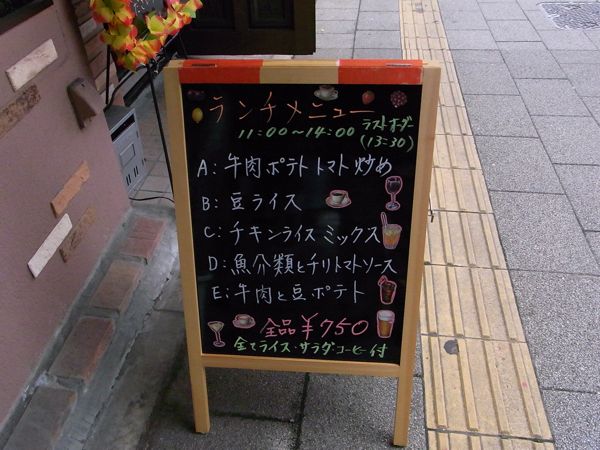 ランチメニュー
11:00〜14:00 ラストオーダー
(13:30)
A:牛肉ポテトトマト炒め
B:豆ライス
C:チキンライスミックス
D:魚介類とチリトマトソース
E:牛肉と豆ポテト
全品¥750
全てライス・サラダ・コーヒー付